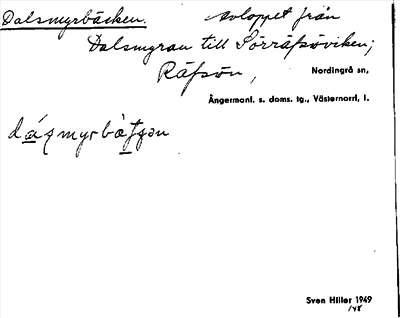 Dalsmyrbäcken. Avloppet från
Dalsmyran till Sörräfsöviken;
Räfsön, Nordingrå sn,
Ångermanl. s. doms. tg., Västernorrl, l.
Sven Hiller 1949
/48